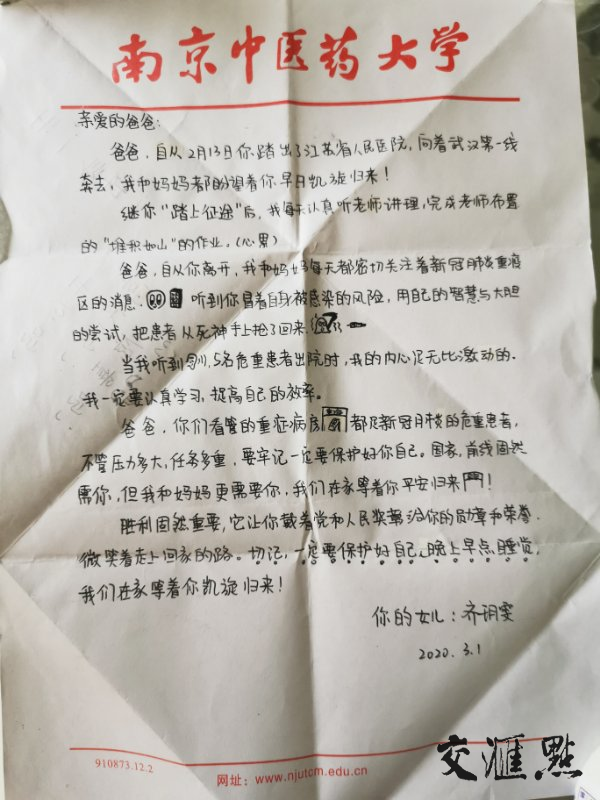 南京中医药大学
亲爱的爸爸:
爸爸,自从2月13日你踏出了江苏省人民医院,向着武汉第一线
奔去,我和妈妈都盼望着你早日凯旋归来!
继你"踏上征途"后,我每天认真听老师讲理,完成老师布置
的"堆积如山"的作业。(心累)
爸爸,自从你离开,我和妈妈每天都密切关注着新冠肺炎重疫
区的消息. 听到你冒着自身被感染的风险,用自己的智慧与大胆
的尝试,把患者从死神手上抢了回来.
当我听到 5名危重患者出院时,我的内心是无比激动的.
我一定要认真学习,提高自己的效率。
爸爸,你们看管的重症病房 都是新冠肺炎的危重患者,
不管压力多大,任务多重,要牢记一定要保护好你自己。国家,前线固然
需你,但我和妈妈更需要你,我们在家等着你平安归来!
胜利固然重要,它让你戴着党和人民奖 给你的勋章和荣誉.
微笑着走上回家的路。切记,一定要保护好自己、晚上早点睡觉,
我们在家等着你凯旋归来!
你的女儿:齐玥雯
2020.3.1
910873.12.2
网址:www.njutcm.edu.cn
交滙點